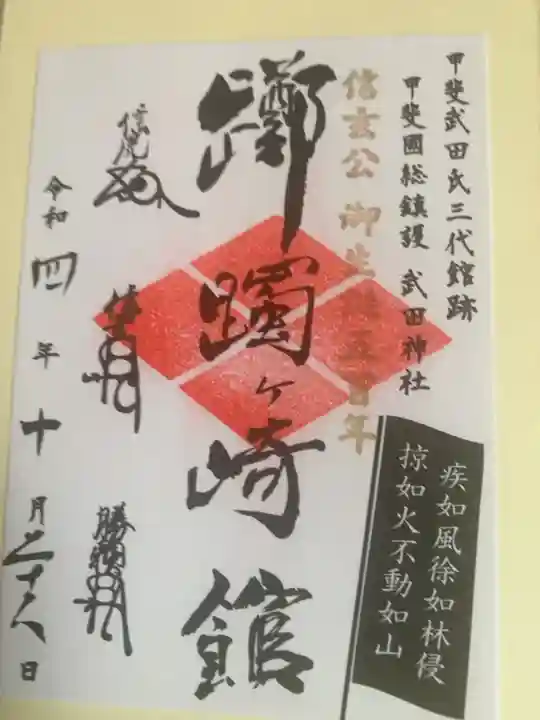 甲斐武田氏三代館跡
甲斐國総鎮護 武田神社
疾如風徐如林侵
掠如火不動如山
信玄公 御生誕五百年
躑躅ヶ崎館
信虎
信玄
勝頼
令和四年十月二十八日